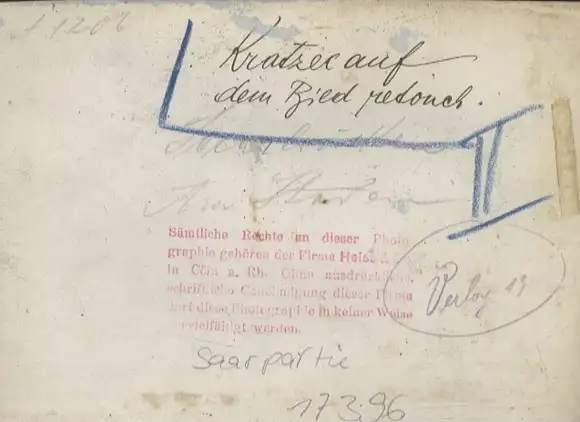 A 1208
Kratzec auf
dem Bied retouch.
Sämtliche Rechte an dieser Photo
graphie gehören der Firma
in Cöln a. Rh. Ohne ausdrückliche
schriftliche Genehmigung dieser Firma
darf diese Photographie in keiner Weise
vervielfältigt werden.
Verlag 19
Saarpartie
17 3.96